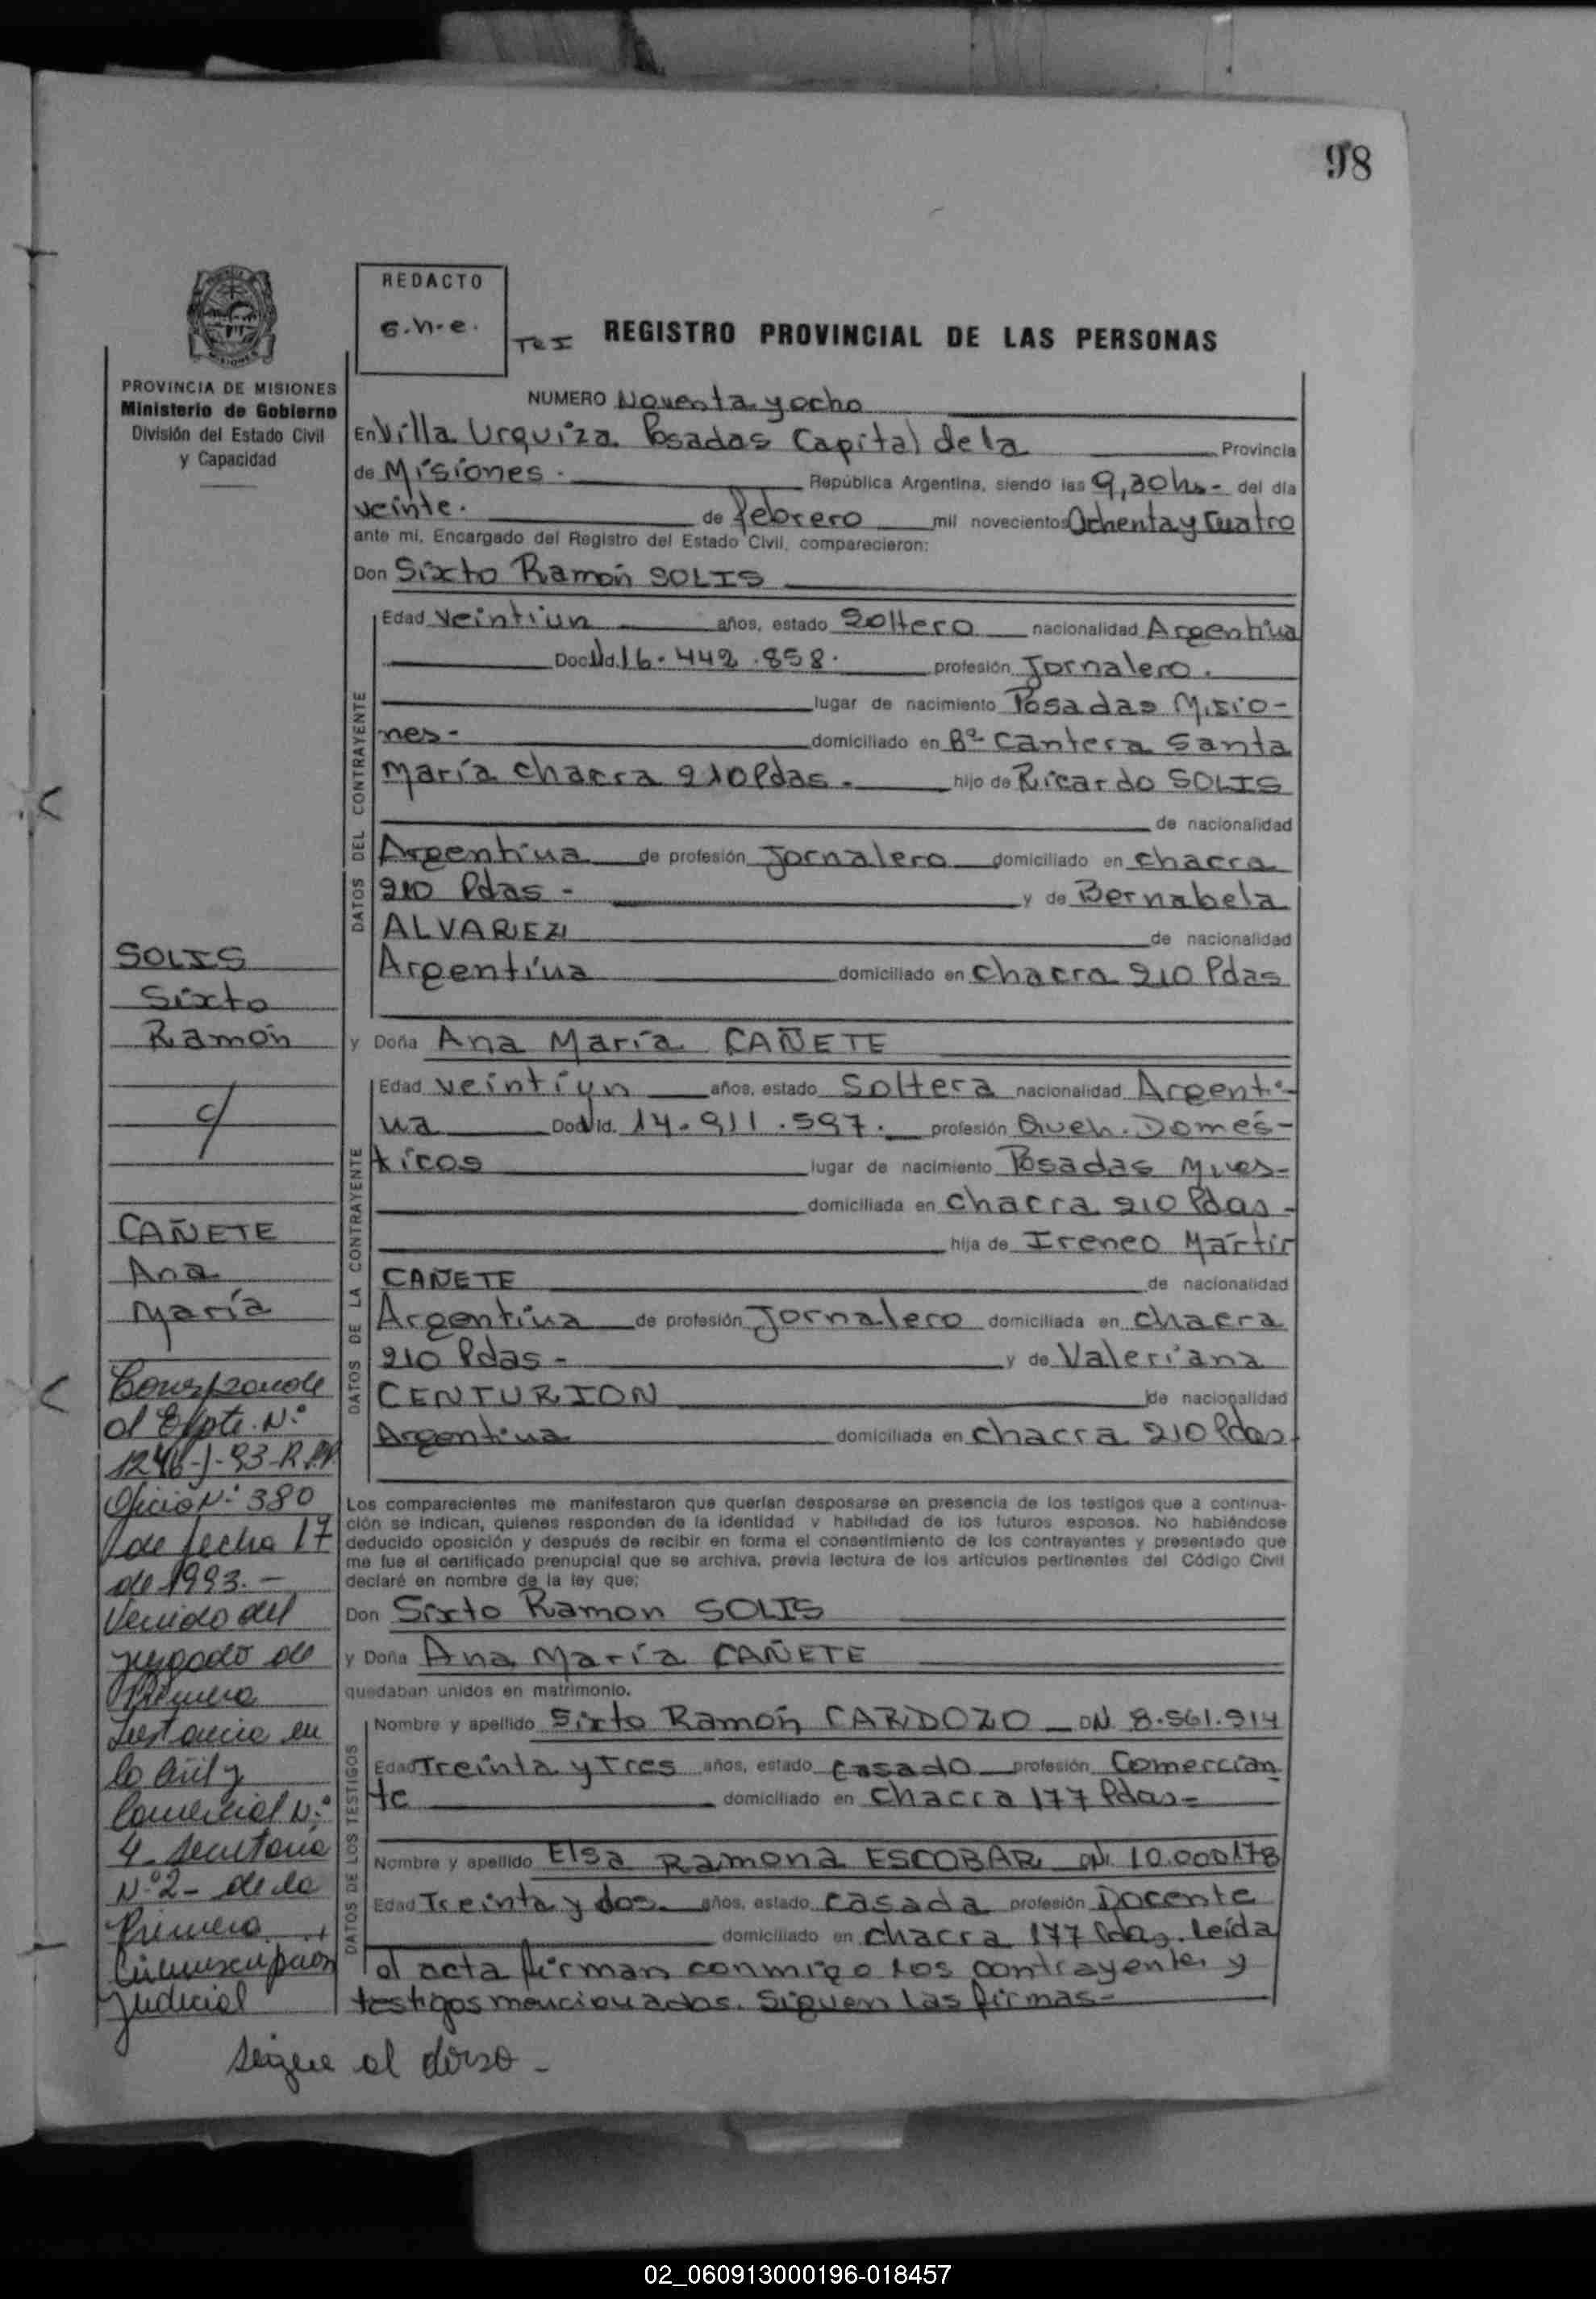 98
REDACTO
TºI
REGISTRO PROVINCIAL DE LAS PERSONAS
PROVINCIA DE MISIONES
Ministerio de Gobierno
División del Estado Civil
y Capacidad
NUMERO Noventa y ocho
En Villa Urquiza Posadas Capital de la Provincia
de Misiones - República Argentina, siendo las 9,30 hs - del día
veinte. de febrero mil novecientos Ochenta y Cuatro
ante mi, Encargado del Registro del Estado Civil, comparecieron:
Don Sixto Ramón SOLIS
DATOS DEL CONTRAYENTE
Edad veintiun años, estado Soltero nacionalidad Argentina
Doc. Id. 16.442.858. profesión Jornalero.
lugar de nacimiento Posadas Misio-
nes- domiciliado en Bº Cantera Santa
María chacra 210 Pdas. hijo de Ricardo SOLIS
de nacionalidad
Argentina de profesión Jornalero domiciliado en chacra
210 Pdas - y de Bernabela
ALVAREZ de nacionalidad
Argentina domiciliado en chacra 210 Pdas
y Doña Ana María CAÑETE
DATOS DE LA CONTRAYENTE
Edad veintiun años, estado Soltera nacionalidad Argenti-
na Doc. Id. 14.911.597. profesión Queh. Domés-
ticos lugar de nacimiento Posadas Mnes-
domiciliada en chacra 210 Pdas -
hija de Ireneo Mártir
CAÑETE de nacionalidad
Argentina de profesión Jornalero domiciliada en chacra
210 Pdas - y de Valeriana
CENTURION de nacionalidad
Argentina domiciliada en chacra 210 Pdas
Los comparecientes me manifestaron que querían desposarse en presencia de los testigos que a continua-
ción se indican, quienes responden de la identidad y habilidad de los futuros esposos. No habiéndose
deducido oposición y después de recibir en forma el consentimiento de los contrayentes y presentado que
me fue el certificado prenupcial que se archiva, previa lectura de los artículos pertinentes del Código Civil
declaré en nombre de la ley que;
Don Sixto Ramon SOLIS
y Doña Ana María CAÑETE
quedaban unidos en matrimonio.
DATOS DE LOS TESTIGOS
Nombre y apellido Sixto Ramón CARDOZO - DNI 8.561.914
Edad Treinta y Tres años, estado casado profesión Comercian
te domiciliado en chacra 177 Pdas-
Nombre y apellido Elsa Ramona ESCOBAR DNI 10.000178
Edad Treinta y dos años, estado casada profesión Docente
domiciliado en chacra 177 Pdas. Leída
el acta firman conmigo los contrayentes y
testigos mencionados. Siguen las firmas-
SOLIS
Sixto
Ramón
c/
CAÑETE
Ana
María
Corresponde
al Expte. Nº
1246-J-93-R.P.P.
Oficio Nº 380
de fecha 17
de 1993.-
Venido del
Juzgado de
Primera
Instancia en
lo Civil y
Comercial Nº
4 - Secretaria
Nº 2 - de la
Primera
Circunscripcion
Judicial
Seigue al dorso -
02_060913000196-018457